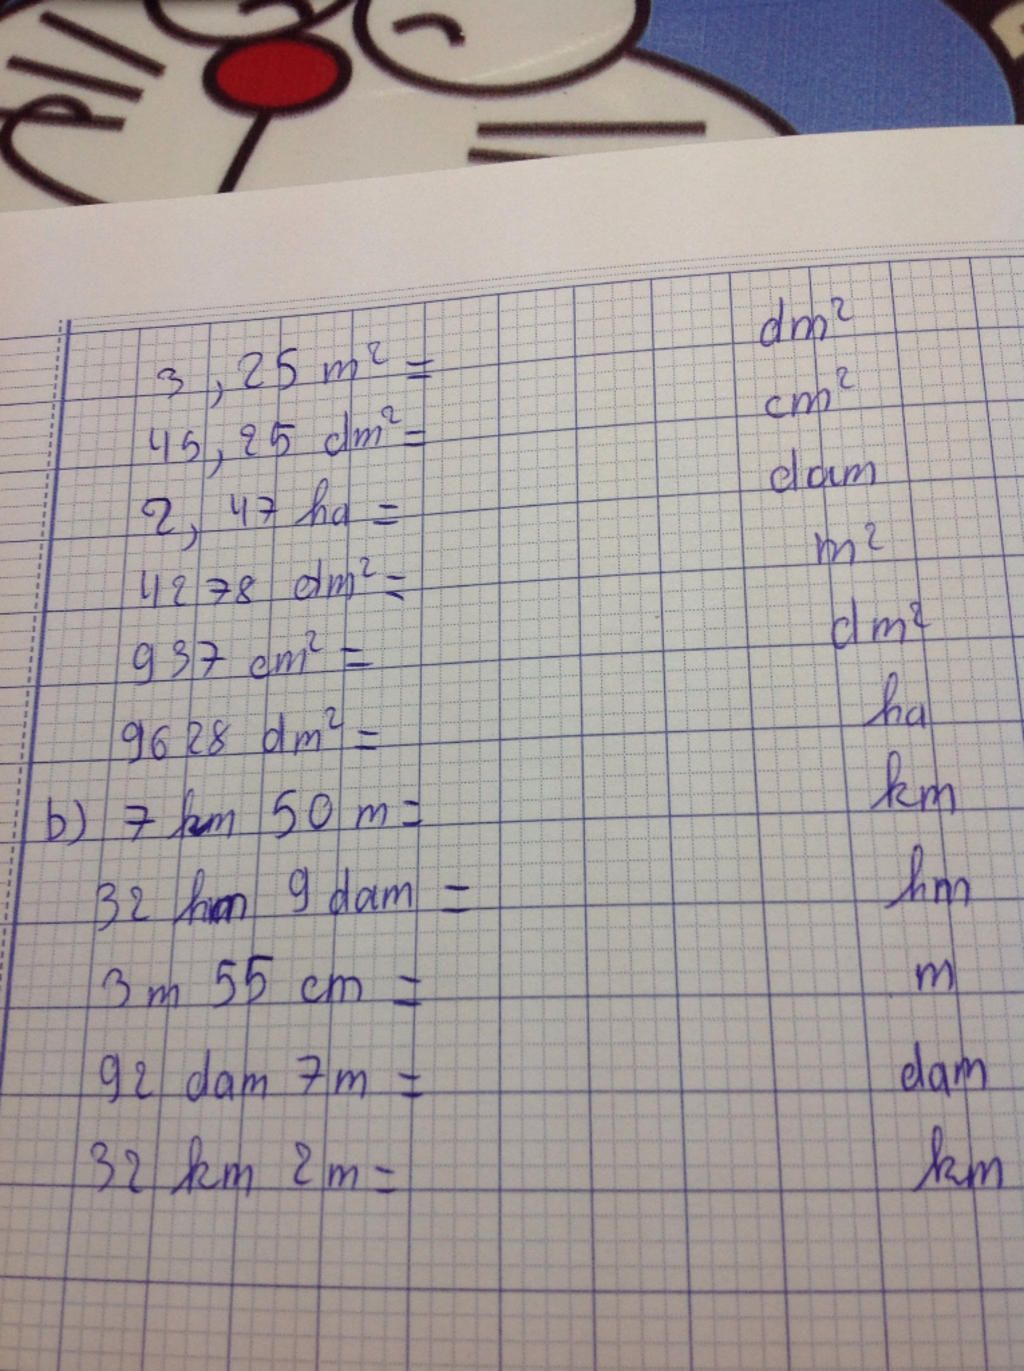 3,25 m² = dm²
45,25 dm² = cm²
2,47 ha = dam
4278 dm² = m²
937 cm² = dm²
9628 dm² = ha
b) 7 km 50 m = km
32 hm 9 dam = hm
3 m 55 cm = m
92 dam 7 m = dam
32 km 2 m = km